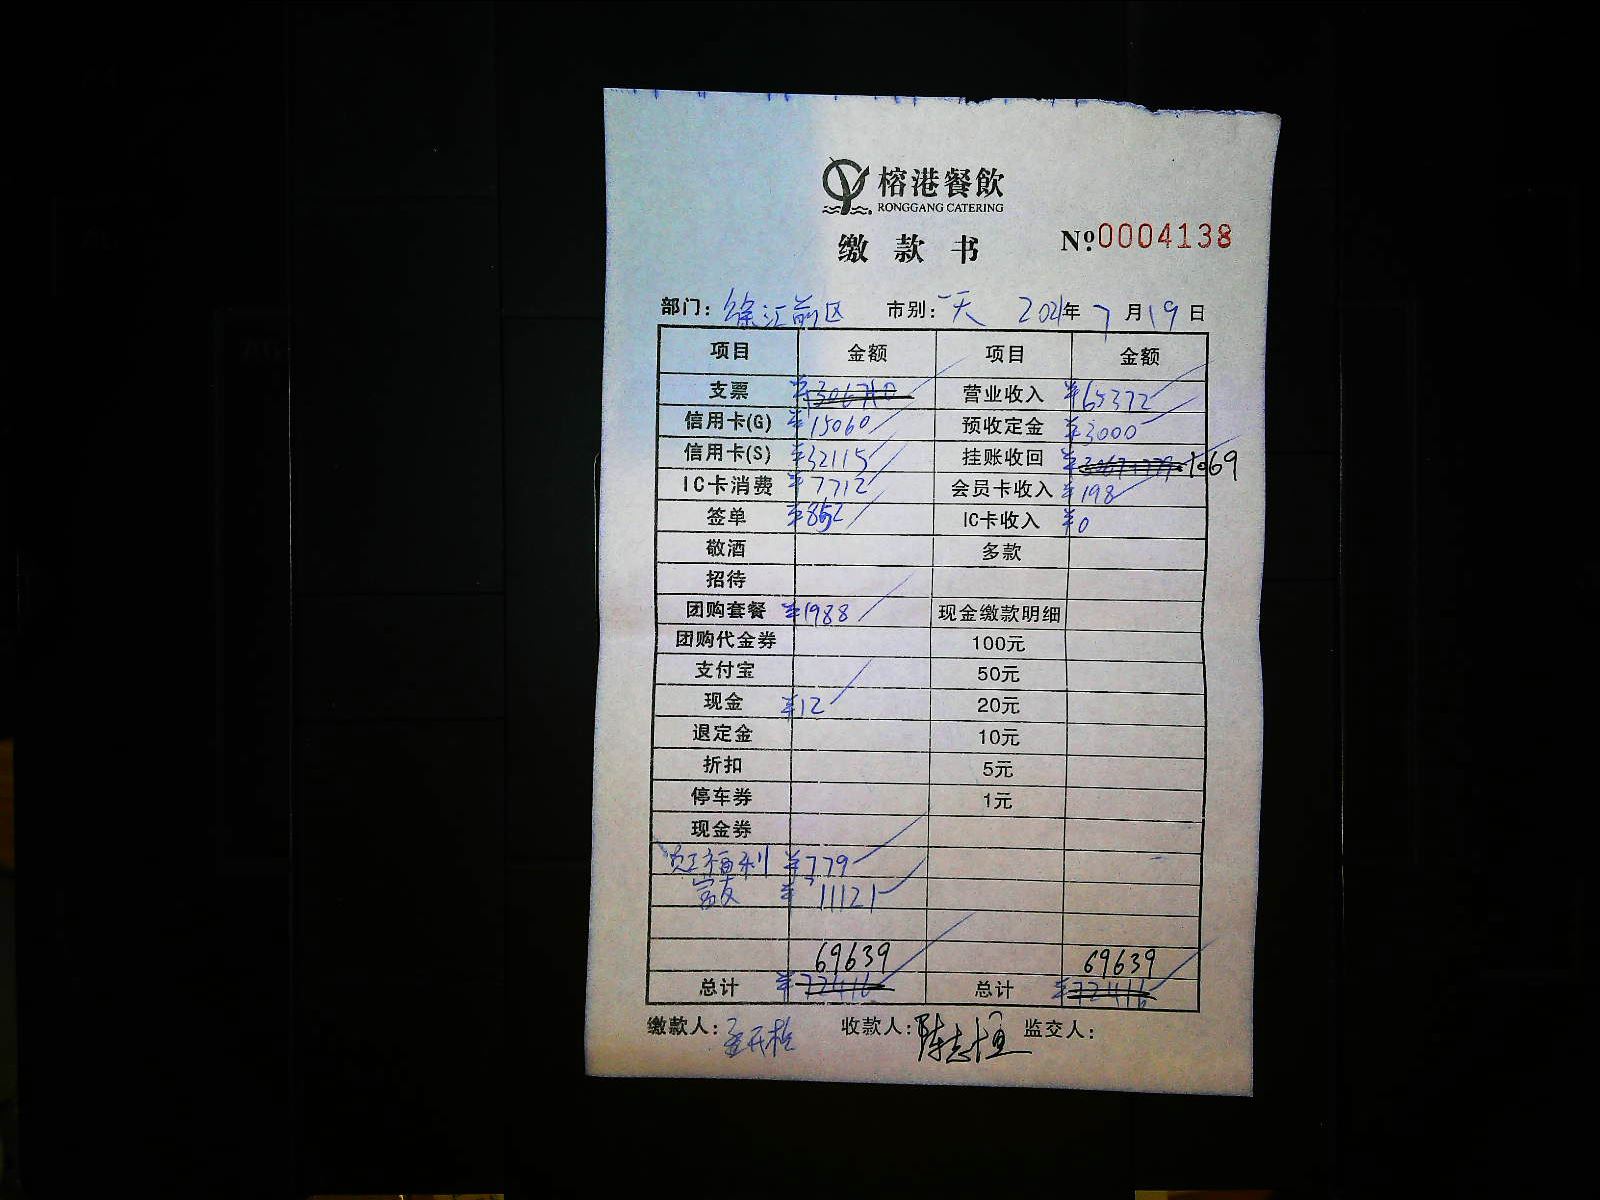 榕港餐飲
RONGGANG CATERING
缴款书 №0004138
部门：徐汇前区 市别：一天 2021年7月19日
项目 金额 项目 金额
支票 营业收入 ¥65372
信用卡(G) ¥15060 预收定金 ¥3000
信用卡(S) ¥32115 挂账收回 1069
IC卡消费 ¥7712 会员卡收入 ¥198
签单 ¥852 IC卡收入 ¥0
敬酒 多款
招待
团购套餐 ¥1988 现金缴款明细
团购代金券 100元
支付宝 50元
现金 ¥12 20元
退定金 10元
折扣 5元
停车券 1元
现金券
员工福利 ¥779
¥11121
69639 69639
总计 ¥72416 总计 ¥72416
缴款人： 收款人：陈志恒 监交人：